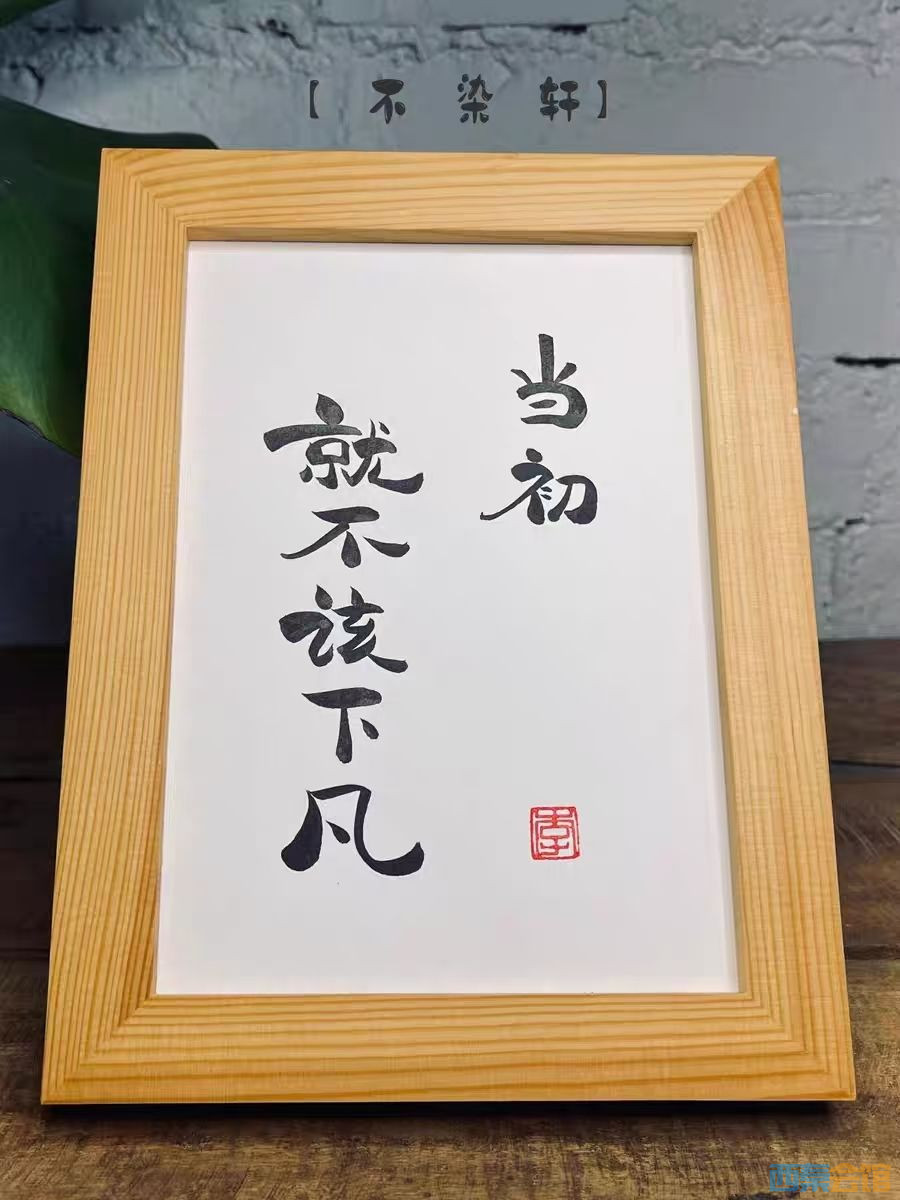 【不染轩】
当初
就不该下凡
李